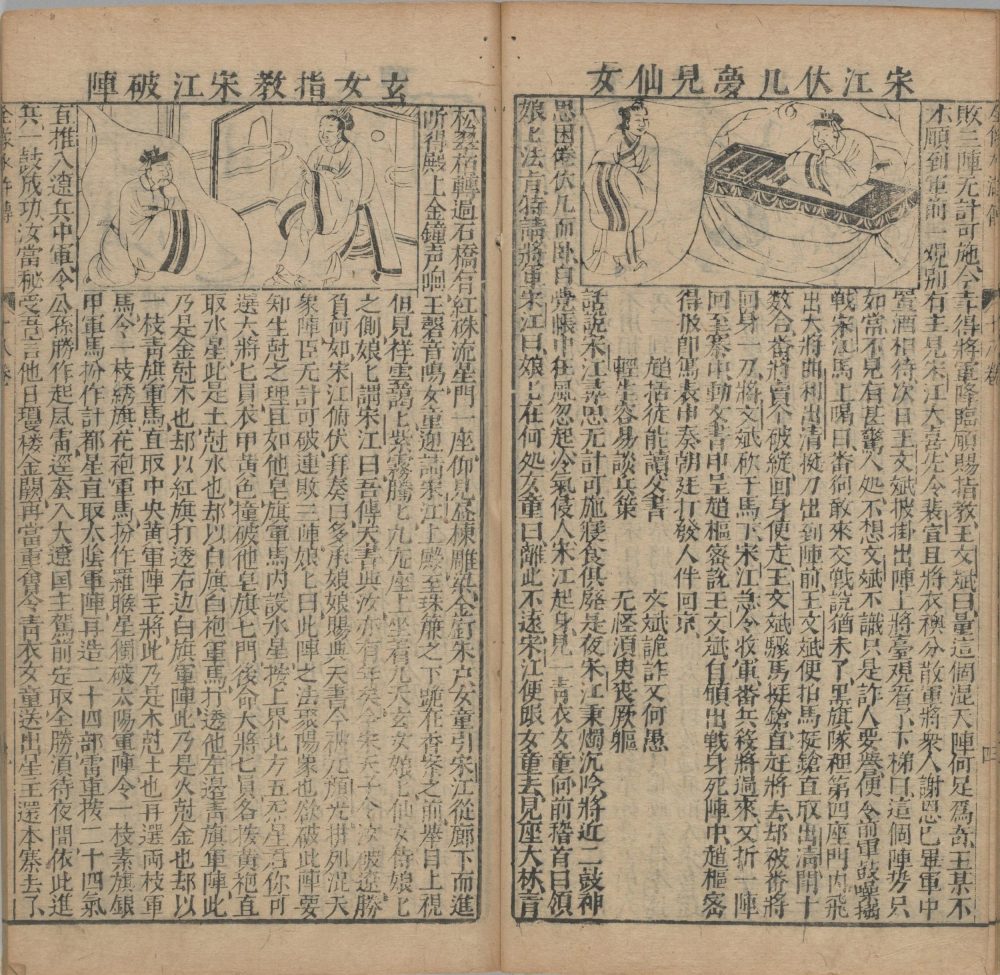 宋江伏几夢見仙女
敗三陣无計可施今幸得將軍降臨願賜指教王文斌曰量這個混天陣何足爲竒王某不
才願到軍前一覌別有主見宋江大喜先令裴宣且將衣襖分散軍將衆人謝恩已畢軍中
置酒相待次日王文斌披掛出陣上將臺觀看了下梯曰這個陣势只
如常不見有甚驚人処不想文斌不識只是詐人要譽便令前軍鼓噪搦
戰宋江馬上喝曰畨狗敢來交戦說猶未了黑旗隊裡第四座門內飛
出大將曲利出清挺刀出到陣前王文斌便拍馬挺鎗直取出清閗十
数合畨將賣个破綻回身便走王文斌驟馬挺鎗直赶將去却被畨將
回身一刀將文斌砍于馬下宋江急令收軍畨兵殺將過來又折一陣
回至寨中動文書申呈趙樞密說王文斌自願出戦身死陣中趙樞密
得报即傋表申奏朝廷打發人伴回京
趙括徒能讀父書　文斌詭詐又何愚
輕生容易談兵策　无怪湏臾喪厥軀
話說宋江尋思无計可施寢食俱廢是夜宋江秉燭沉唫將近二鼓神
思困倦伏几而卧自覺帳中狂風忽起冷氣侵人宋江起身見一青衣女童向前稽首曰領
娘匕法旨特請將軍宋江曰娘匕在何処女童曰離此不遠宋江便跟女童去見座大林青
玄女指教宋江破陣
松翠栢轉過石橋有紅硃流星門一座仰見叠棟雕梁金釘朱户女童引宋江從廊下而進
所得殿上金鐘声响玉磬音鳴女童迎請宋江上殿至珠簾之下跪在香案之前舉目上視
但見祥雲靄匕紫霧騰匕九龙座上坐着九天玄女娘匕仙女侍娘匕
之側娘匕謂宋江曰吾傳天書與汝亦有年矣今宋天子令汝破遼勝
負何如宋江俯伏拜奏曰多承娘娘賜與天書今被兀顔光排列混天
象陣臣无計可破連敗三陣娘匕曰此陣之法聚陽象也欲破此陣要
知生尅之理且如他皂旗軍馬內設水星按上界北方五炁星君你可
選大將七員衣甲黄色撞破他皂旗七門後命大將七員各披黄袍直
取水星此是土尅水也却以白旗白袍軍馬打透他左邉青旗軍陣此
乃是金尅木也却以紅旗打透右边白旗軍陣此乃是火尅金也却以
一枝青旗軍馬直取中央黄軍陣主將此乃是木尅土也再選兩枝軍
馬令一枝綉旗花袍軍馬扮作羅睺星獨破太陽軍陣令一枝素旗銀
甲軍馬扮作計都星直取太陰軍陣再造二十四部雷車按二十四氣
直推入遼兵中軍令公孫勝作起風雷逕奔入大遼国主駕前定取全勝湏待夜間依此進
兵一鼓成功汝當秘受吾言他日瓊楼金闕再當重會令青衣女童送出星主還本寨去了